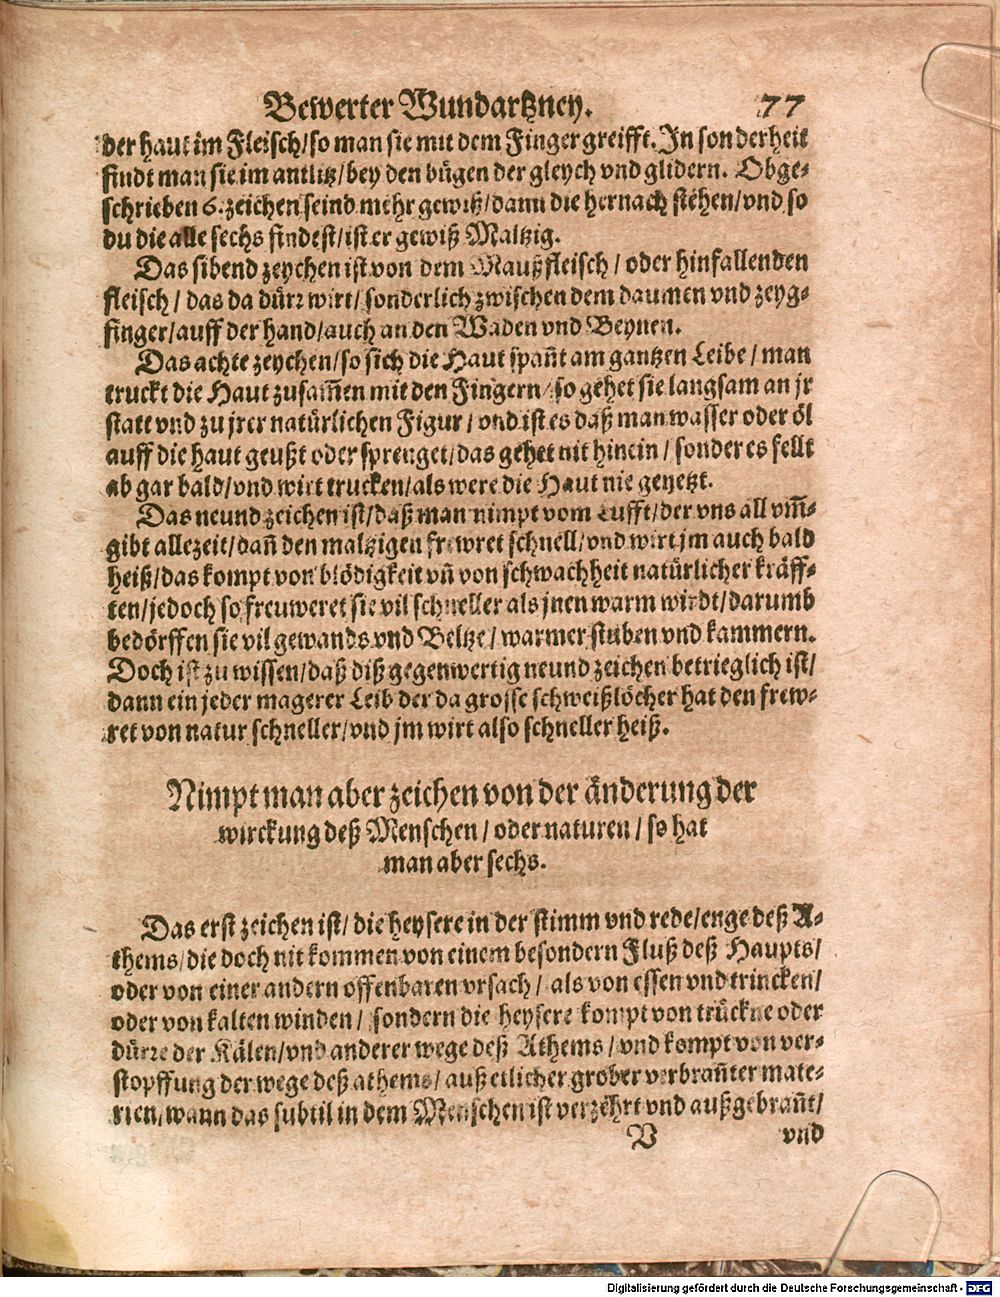 Bewerter Wundartzney. 77
der haut im Fleisch/so man sie mit dem Finger greifft. In sonderheit
findt man sie im antlitz/bey den bügen der gleych vnd glidern. Obge-
schrieben 6. zeichen seind mehr gewiß/dann die hernach stehen/vnd so
du die alle sechs findest/ist er gewiß Maltzig.
Das sibend zeychen ist von dem Maußfleisch / oder hinfallenden
fleisch / das da dürr wirt/ sonderlich zwischen dem daumen vnd zeyg-
finger/auff der hand/auch an den Waden vnd Beynen.
Das achte zeychen/so sich die Haut spañt am gantzen Leibe / man
truckt die Haut zusam̃en mit den Fingern/ so gehet sie langsam an jr
statt vnd zu jrer natürlichen Figur / vnd ist es daß man wasser oder öl
auff die haut geußt oder sprenget/das gehet nit hinein / sonder es fellt
ab gar bald/vnd wirt trucken/als were die Haut nie genetzt.
Das neund zeichen ist/daß man nimpt vom Lufft/der vns all vm̃-
gibt allezeit/dañ den maltzigen frewret schnell/vnd wirt jm auch bald
heiß/das kompt von blödigkeit vñ von schwachheit natürlicher kräff-
ten/jedoch so freuweret sie vil schneller als jnen warm wirdt/darumb
bedörffen sie vil gewands vnd Beltze / warmer stuben vnd kammern.
Doch ist zu wissen/daß diß gegenwertig neund zeichen betrieglich ist/
dann ein jeder magerer Leib der da grosse schweißlöcher hat den frew-
ret von natur schneller/vnd jm wirt also schneller heiß.
Nimpt man aber zeichen von der änderung der
wirckung deß Menschen / oder naturen / so hat
man aber sechs.
Das erst zeichen ist/ die heysere in der stimm vnd rede/enge deß A-
thems/die doch nit kommen von einem besondern Fluß deß Haupts/
oder von einer andern offenbaren vrsach / als von essen vnd trincken/
oder von kalten winden / sondern die heysere kompt von trückne oder
dürre der Kälen/vnd anderer wege deß Athems / vnd kompt von ver-
stopffung der wege deß athems/ auß etlicher grober verbrañter mate-
rien/wann das subtil in dem Menschen ist verzehrt vnd außgebrañt/
V vnd
Digitalisierung gefördert durch die Deutsche Forschungsgemeinschaft - DFG